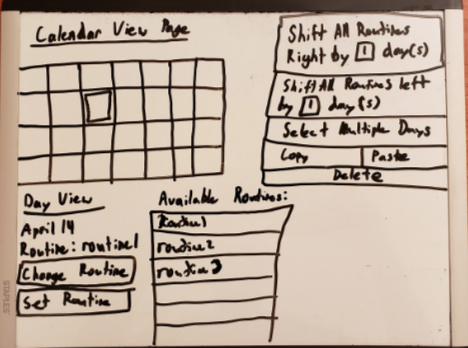 Calendar View Page
Shift All Routines
Right by 1 day(s)
Shift All Routines left
by 1 day(s)
Select Multiple Days
Copy
Paste
Delete
Day View
April 14
Routine: routine1
Change Routine
Set Routine
Available Routines:
Routine1
routine2
routine3
STAPLES